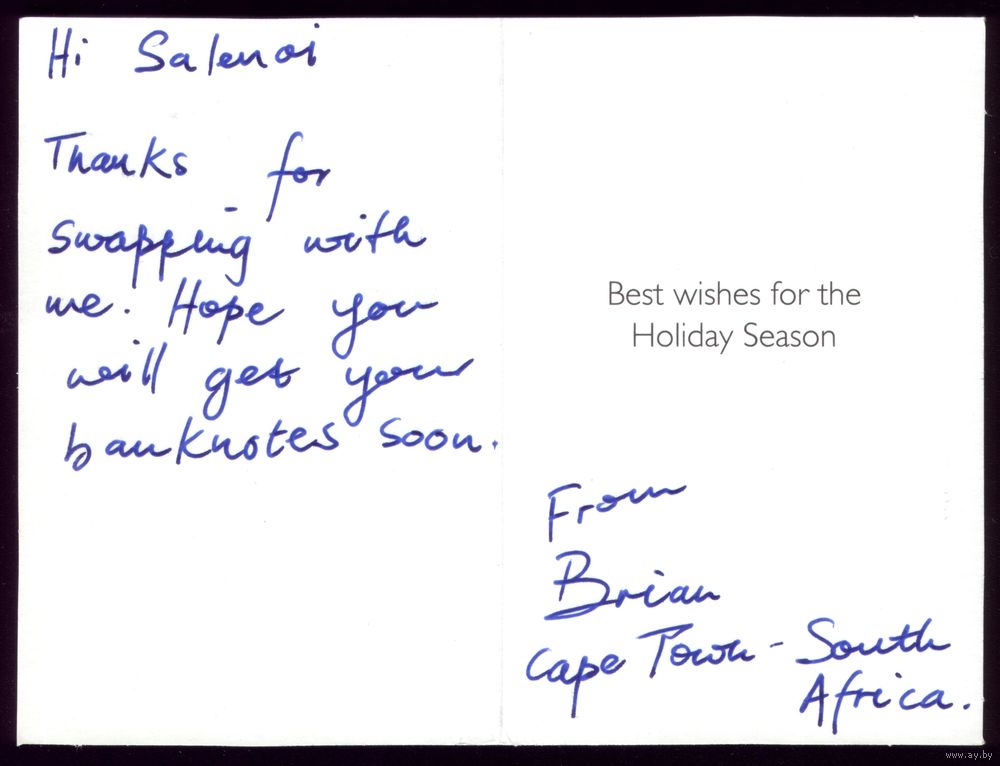 Hi Salenoi
Thanks for
swapping with
me. Hope you
will get your
banknotes soon.
Best wishes for the
Holiday Season
From
Brian
Cape Town - South
Africa.
www.ay.by